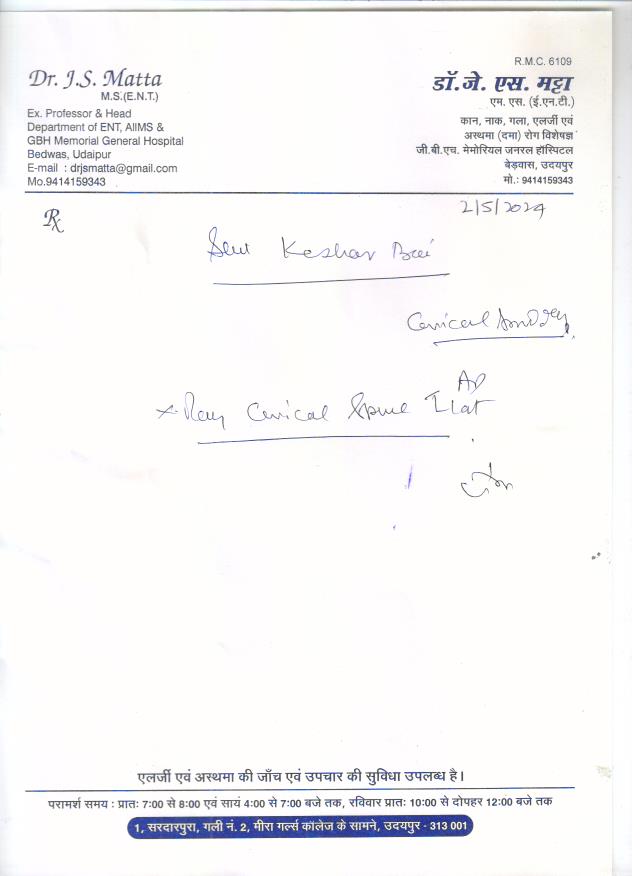 R.M.C. 6109
Dr. J.S. Matta
M.S.(E.N.T.)
Ex. Professor & Head
Department of ENT, AIIMS &
GBH Memorial General Hospital
Bedwas, Udaipur
E-mail : drjsmatta@gmail.com
Mo.9414159343
डॉ.जे. एस. मट्टा
एम. एस. (ई.एन.टी.)
कान, नाक, गला, एलर्जी एवं
अस्थमा (दमा) रोग विशेषज्ञ
जी.बी.एच. मेमोरियल जनरल हॉस्पिटल
बेड़वास, उदयपुर
मो.: 9414159343
2/5/2024
Rx
Keshar Bai
Cervical
AP
X-Ray Cervical Spine Lat
एलर्जी एवं अस्थमा की जाँच एवं उपचार की सुविधा उपलब्ध है।
परामर्श समय : प्रातः 7:00 से 8:00 एवं सायं 4:00 से 7:00 बजे तक, रविवार प्रातः 10:00 से दोपहर 12:00 बजे तक
1, सरदारपुरा, गली नं. 2, मीरा गर्ल्स कॉलेज के सामने, उदयपुर - 313 001